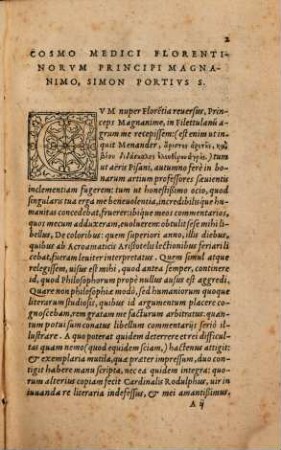 2
COSMO MEDICI FLORENTI-
NORVM PRINCIPI MAGNA-
NIMO, SIMON PORTIVS S.
VM nuper Florẽtia reuersus, Prin-
ceps Magnanime, in Filettulani a-
grum me recepissem: (est enim ut in-
quit Menander,
) tum
ut aëris Pisani, autumno ferè in bo-
narum artium professores sæuientis
inclementiam fugerem: tum ut honestissimo ocio, quod
singularis tua erga me beneuolentia, incredibilisque hu-
manitas concedebat, fruerer: ibique meos commentarios,
quos mecum adduxeram, euoluerem: obtulit sese mihi li-
bellus, De coloribus: quem superiori anno, illis diebus,
quibus ab Acroamaticis Aristotelis lectionibus feriari li-
cebat, fueram leuiter interpretatus. Quem simul atque
relegissem, uisus est mihi, quod antea semper, continere
id, quod Philosophorum propè nullus ausus est aggredi.
Quare non philosophis modò, sed humaniorum quoque
literarum studiosis, quibus id argumentum placere cogno-
scebam, rem gratam me facturum arbitratus: quan-
tum potui sum conatus libellum commentarijs seriò il-
lustrare. A quo poterat quidem deterrere et rei difficul-
tas quam nemo (quod equidem sciam,) hactenus attigit:
& exemplaria mutila, quæ præter impressum, duo con-
tigit habere manu scripta, nec ea quidem integra: quo-
rum alterius copiam fecit Cardinalis Rodulphus, uir in
iuuanda re literaria indefessus, & mei amantissimus.
A ij